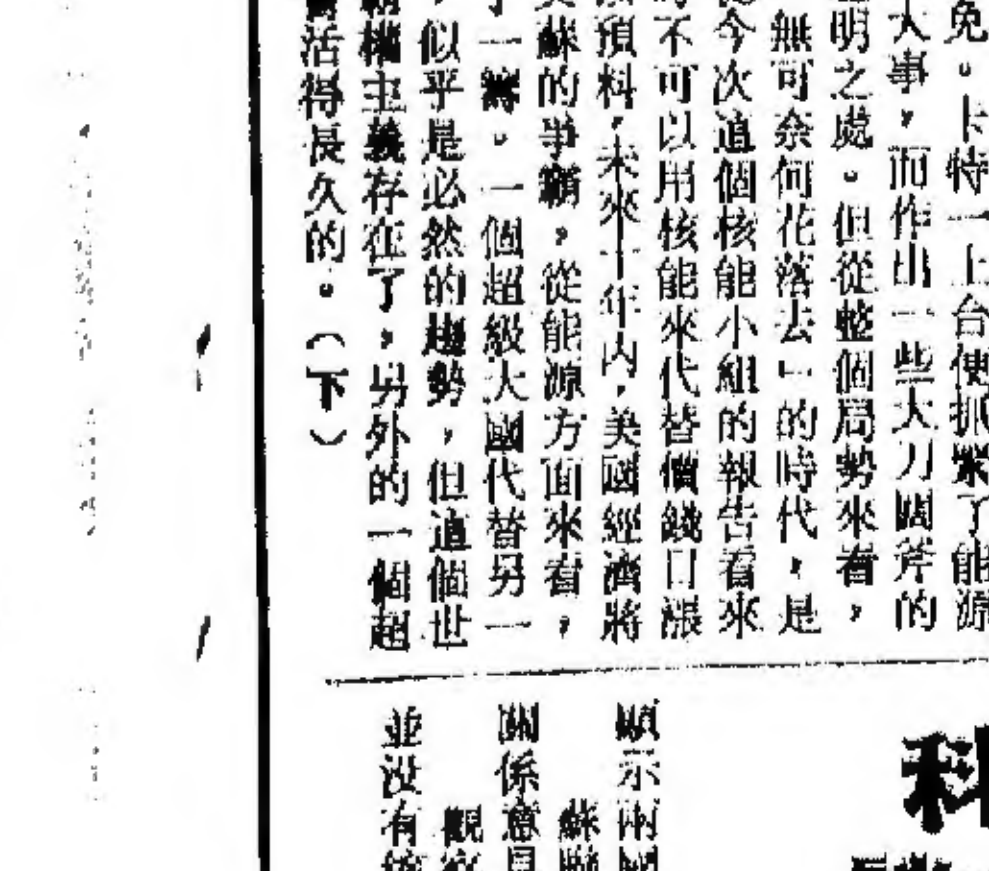 免。卡特一上台便抓緊了能源
大事，而作出一些大刀闊斧的
明之處。但從整個局勢來看，
無可奈何花落去」的時代，是
今次這個核能小組的報告看來
不可以用核能來代替價錢日漲
預料，未來十年內，美國經濟將
蘇的爭霸，從能源方面來看，
一籌。一個超級大國代替另一
，似乎是必然的趨勢，但這個世
霸權主義存在了，另外的一個超
活得長久的。（下）
科
顯示兩國
蘇聯
關係意見
觀察
並没有